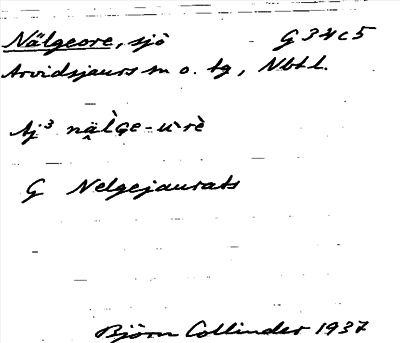 Nälgeore, sjö G 34 c 5
Arvidsjaurs sn o. tg, Nbtl.
Aj³ nä̯l̀ge-u-rè
G Nelgejaurats
Björn Collinder 1937